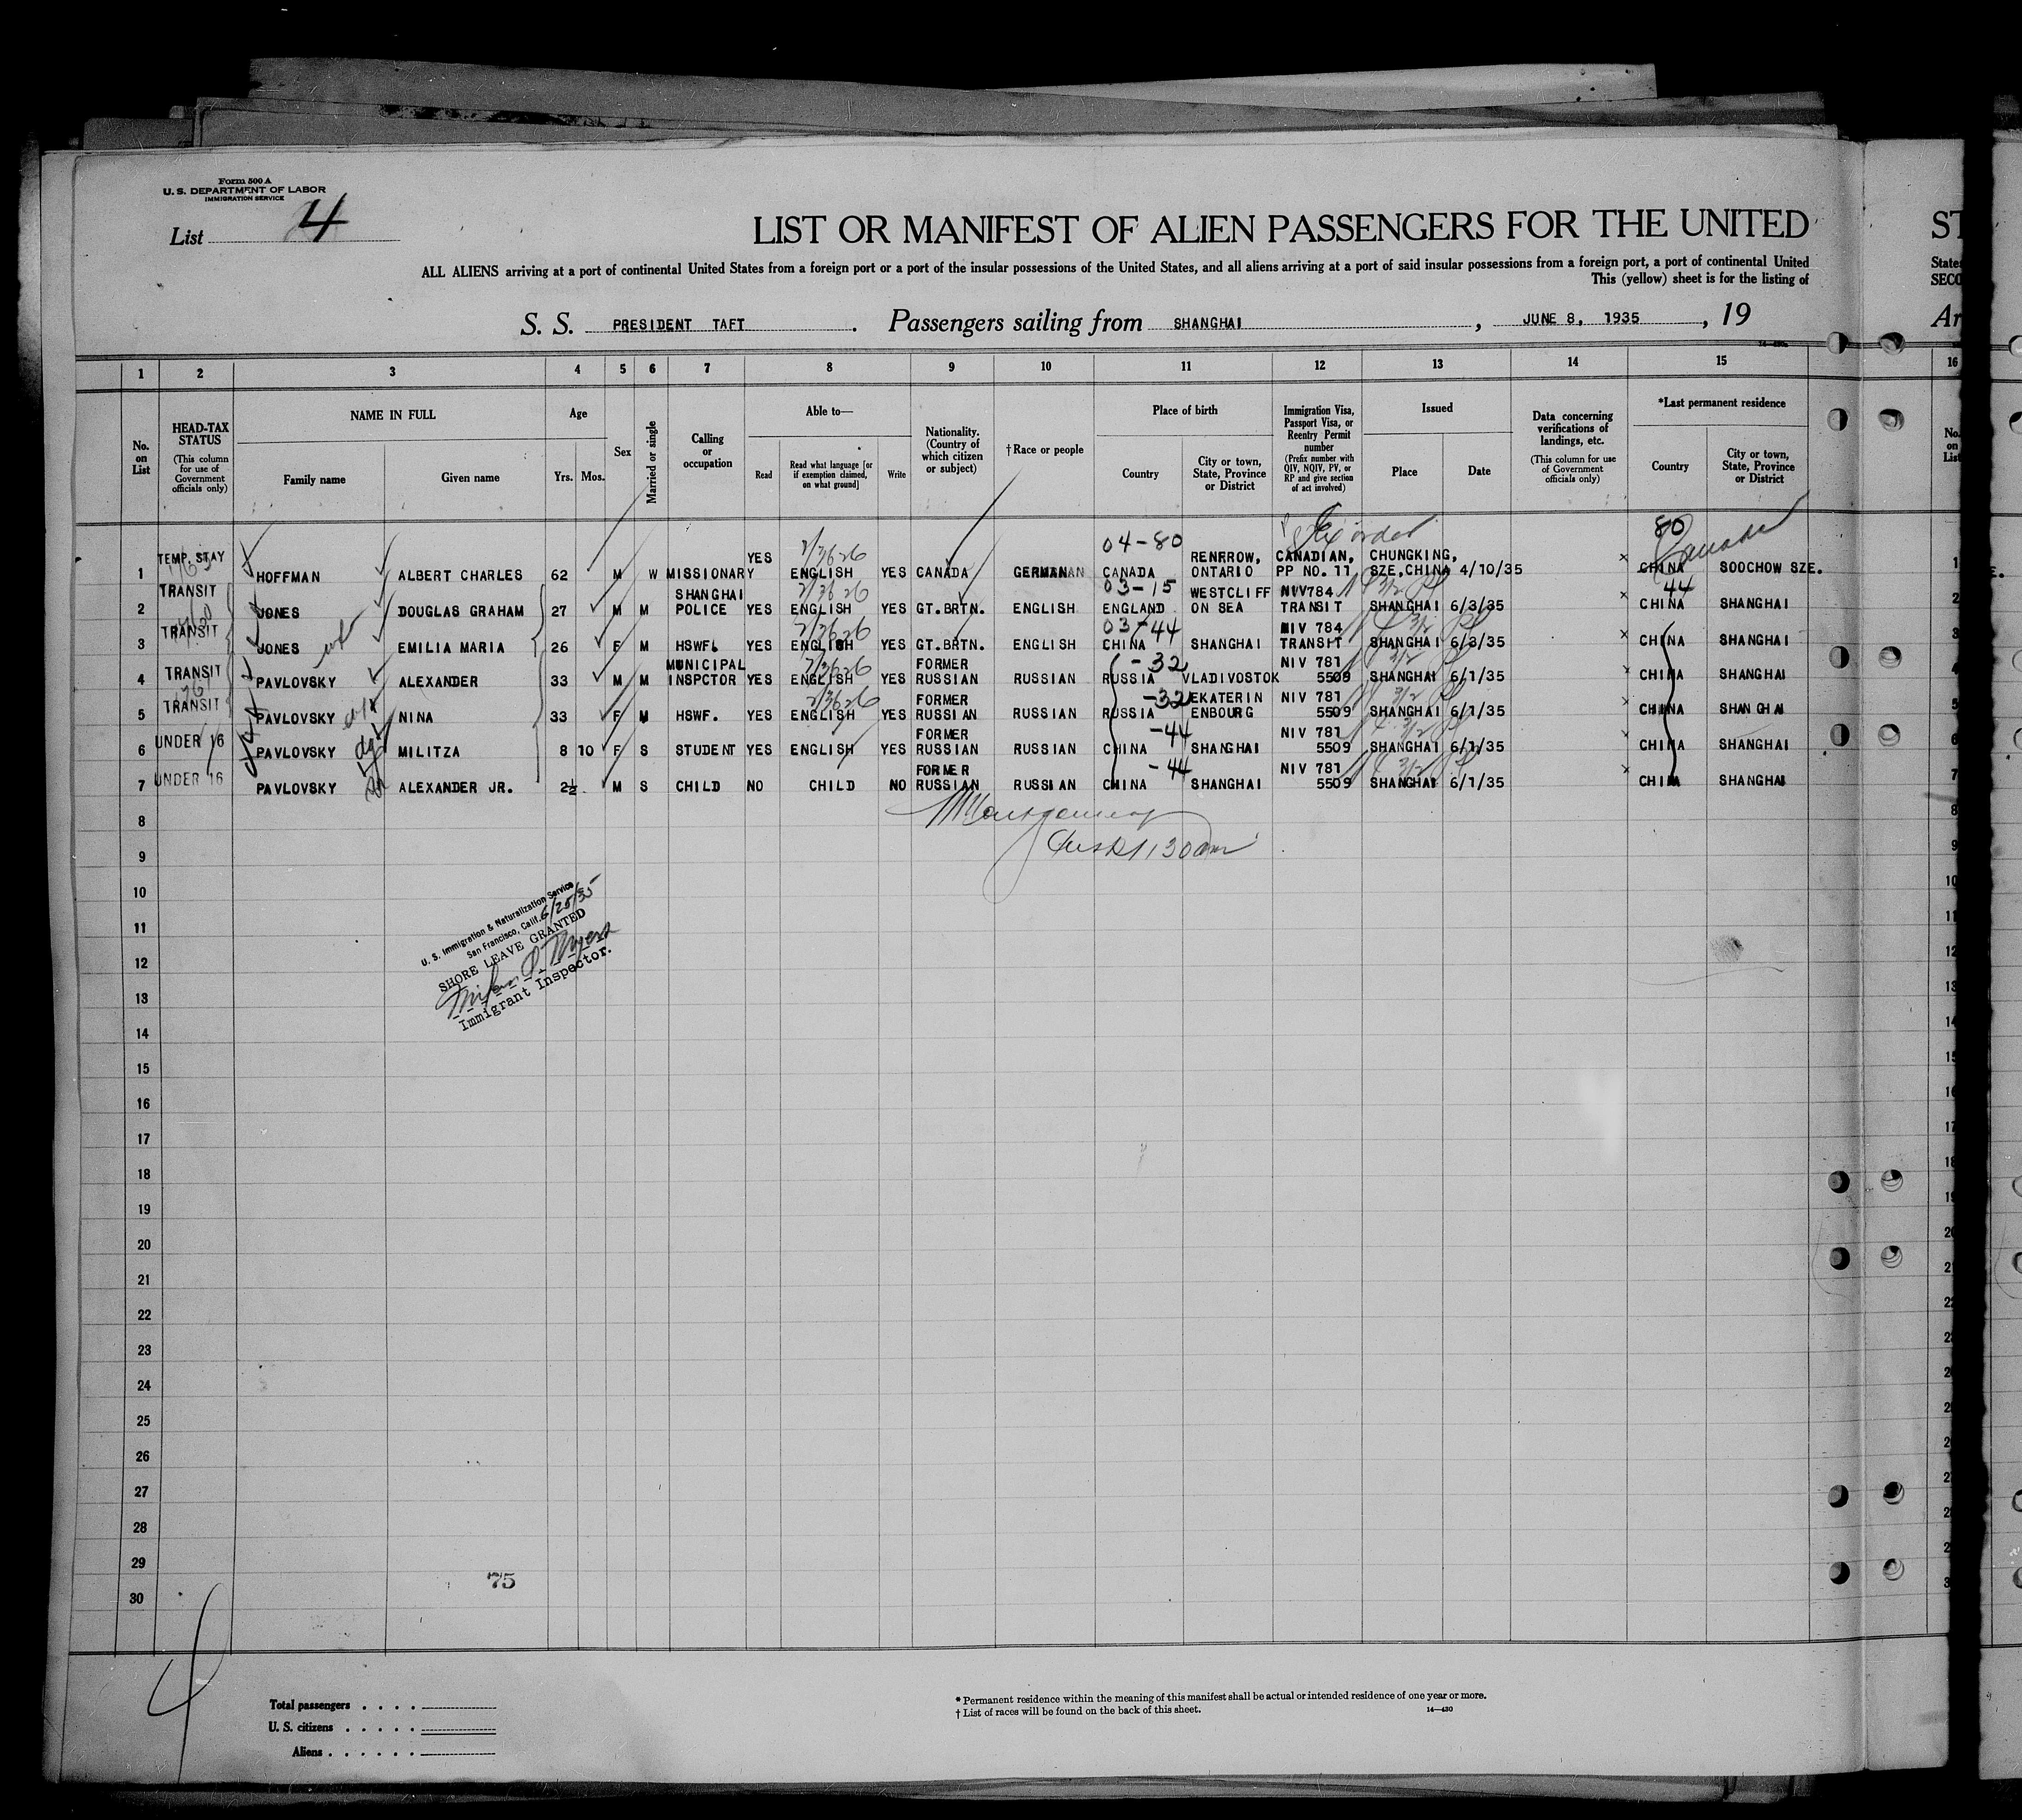 Form 500 A
U. S. DEPARTMENT OF LABOR
IMMIGRATION SERVICE
List 4
LIST OR MANIFEST OF ALIEN PASSENGERS FOR THE UNITED
ALL ALIENS arriving at a port of continental United States from a foreign port or a port of the insular possessions of the United States, and all aliens arriving at a port of said insular possessions from a foreign port, a port of continental United
This (yellow) sheet is for the listing of
S. S. PRESIDENT TAFT. Passengers sailing from SHANGHAI, JUNE 8, 1935, 19
1 2 3 4 5 6 7 8 9 10 11 12 13 14 15 16
No. on List
HEAD-TAX STATUS (This column for use of Government officials only)
NAME IN FULL
Family name Given name
Age
Yrs. Mos.
Sex
Married or single
Calling or occupation
Able to—
Read
Read what language [or if exemption claimed, on what ground]
Write
Nationality. (Country of which citizen or subject)
† Race or people
Place of birth
Country
City or town, State, Province or District
Immigration Visa, Passport Visa, or Reentry Permit number (Prefix number with QIV, NQIV, PV, or RP and give section of act involved)
Issued
Place Date
Data concerning verifications of landings, etc. (This column for use of Government officials only)
*Last permanent residence
Country
City or town, State, Province or District
04-80 80 Canada
1 TEMP. STAY HOFFMAN ALBERT CHARLES 62 M W MISSIONARY YES ENGLISH YES CANADA GERMAN CANADA RENFROW, ONTARIO CANADIAN, PP NO. 11, CHUNGKING, SZE, CHINA 4/10/35 CHINA SOOCHOW SZE.
03-15 44
2 TRANSIT JONES DOUGLAS GRAHAM 27 M M SHANGHAI POLICE YES ENGLISH YES GT.BRTN. ENGLISH ENGLAND WESTCLIFF ON SEA NIV784 TRANSIT SHANGHAI 6/3/35 CHINA SHANGHAI
03-44
3 TRANSIT JONES wf EMILIA MARIA 26 F M HSWF. YES ENGLISH YES GT.BRTN. ENGLISH CHINA SHANGHAI NIV 784 TRANSIT SHANGHAI 6/3/35 CHINA SHANGHAI
-32
4 TRANSIT PAVLOVSKY ALEXANDER 33 M M MUNICIPAL INSPCTOR YES ENGLISH YES FORMER RUSSIAN RUSSIAN RUSSIA VLADIVOSTOK NIV 781 5509 SHANGHAI 6/1/35 CHINA SHANGHAI
-32
5 TRANSIT PAVLOVSKY NINA 33 F M HSWF. YES ENGLISH YES FORMER RUSSIAN RUSSIAN RUSSIA EKATERIN ENBOURG NIV 781 5509 SHANGHAI 6/1/35 CHINA SHANGHAI
-44
6 UNDER 16 PAVLOVSKY MILITZA 8 10 F S STUDENT YES ENGLISH YES FORMER RUSSIAN RUSSIAN CHINA SHANGHAI NIV 781 5509 SHANGHAI 6/1/35 CHINA SHANGHAI
-44
7 UNDER 16 PAVLOVSKY ALEXANDER JR. 2½ M S CHILD NO CHILD NO FORMER RUSSIAN RUSSIAN CHINA SHANGHAI NIV 781 5509 SHANGHAI 6/1/35 CHINA SHANGHAI
8
Montgomery
9
10
11
12
13
14
15
16
17
18
19
20
21
22
23
24
25
26
27
28
29
30
U. S. Immigration & Naturalization Service
San Francisco, Calif. 6/25/35
SHORE LEAVE GRANTED
Myers
Immigrant Inspector.
75
4
Total passengers
U. S. citizens
Aliens
* Permanent residence within the meaning of this manifest shall be actual or intended residence of one year or more.
† List of races will be found on the back of this sheet.
14—430